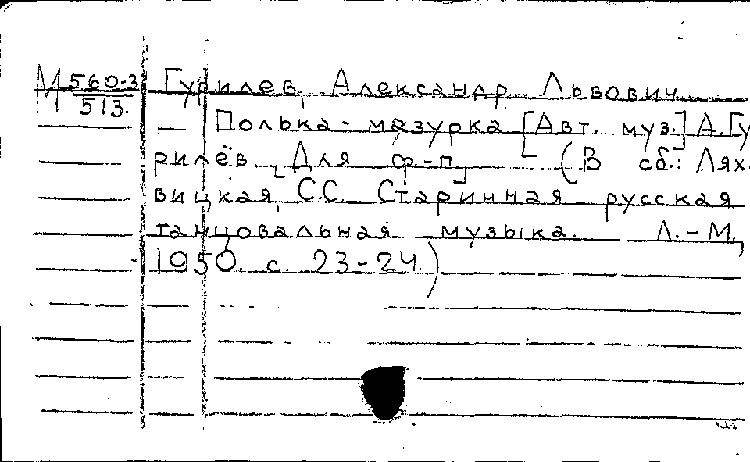 М 560-3/513. Гурилев, Александр Львович
Полька-мазурка [Авт. муз.] А. Гу
рилёв. [Для ф-п] - (В сб.: Лях
вицкая, С.С. Старинная русская
танцовальная музыка. Л.-М,
1950. с. 23-24)